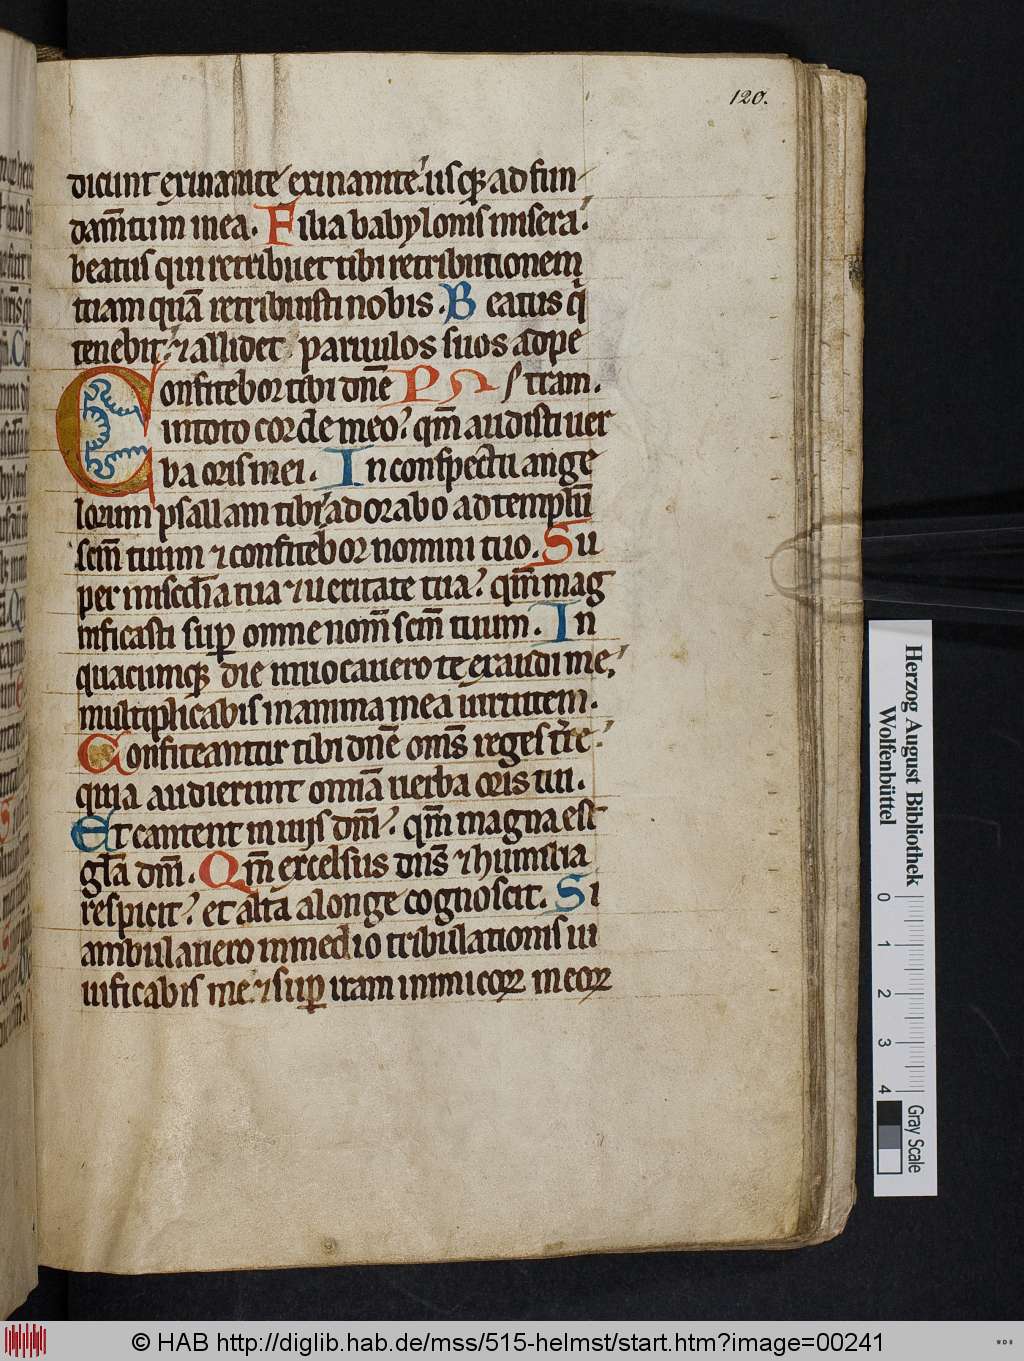 120.
dicunt exinanite exinanite: usq; ad fun
dam̄tum in ea. Filia babylonis misera:
beatus qui retribuet tibi retributionem
tuam quā retribuisti nobis. Beatus q̇
tenebit: ⁊ allidet paruulos suos ad pe
Confitebor tibi dn̄e Ps tram.
in toto corde meo: qm̄ audisti uer
ba oris mei. In conspectu ange
lorum psallam tibi: adorabo ad templū
scm̄ tuum ⁊ confitebor nomini tuo. Su
per miscd̄ia tua ⁊ ueritate tua: qm̄ mag
nificasti sup̱ omne nom̄ scm̄ tuum. In
quacumq; die inuocauero te exaudi me;
multiplicabis in anima mea uirtutem.
Confiteantur tibi dn̄e om̄s reges tr̄e:
quia audierunt omīa uerba oris tui.
Et cantent in uijs dn̄i: qm̄ magna est
glā dn̄i. Qm̄ excelsus dn̄s ⁊ humilia
respicit: et alta a longe cognoscit. Si
ambulauero in medio tribulationis ui
uificabis me: ⁊ sup̱ iram inimicoꝝ meoꝝ
Herzog August Bibliothek
Wolfenbüttel
0 1 2 3 4
Gray Scale
© HAB http://diglib.hab.de/mss/515-helmst/start.htm?image=00241